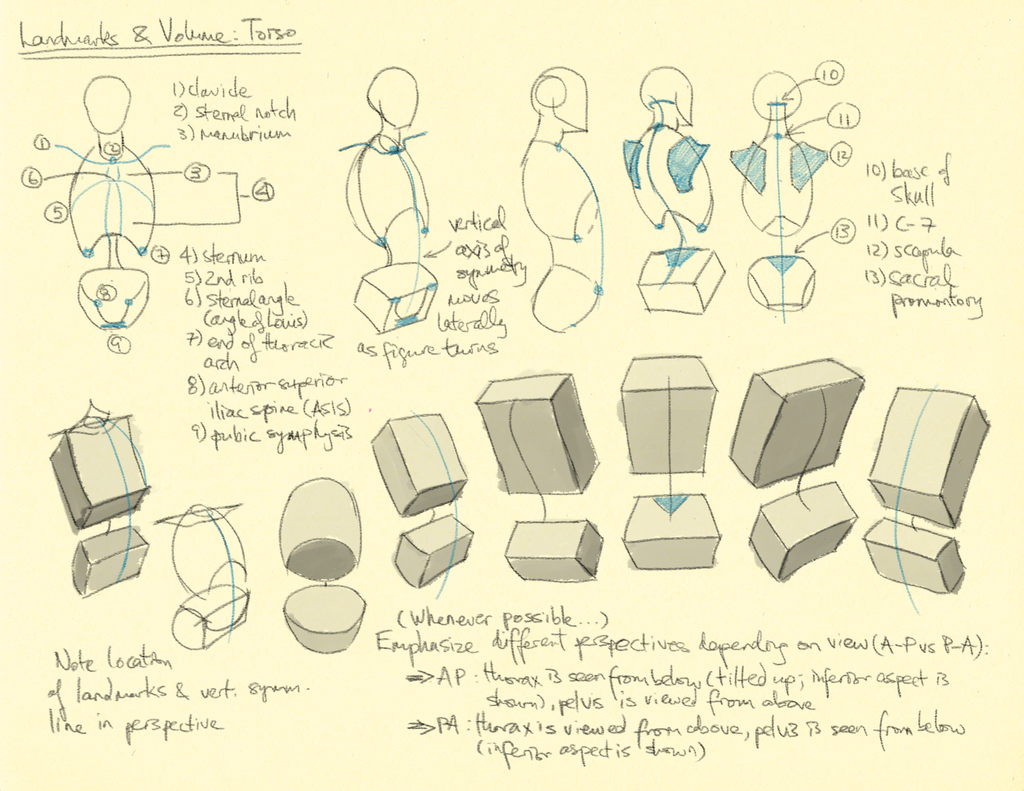 Landmarks & Volume: Torso
1) clavicle
2) sternal notch
3) manubrium
1
2
3
4
5
6
7
8
9
4) sternum
5) 2nd rib
6) sternal angle
(angle of Louis)
7) end of thoracic
arch
8) anterior superior
iliac spine (ASIS)
9) pubic symphysis
vertical
axis of
symmetry
moves
laterally
as figure turns
10
11
12
13
10) base of
skull
11) C-7
12) scapula
13) sacral
promontory
Note location
of landmarks & vert. symm.
line in perspective
(Whenever possible...)
Emphasize different perspectives depending on view (A-P vs P-A):
⇒ AP: thorax is seen from below, (tilted up; inferior aspect is
shown), pelvis is viewed from above
⇒ PA: thorax is viewed from above, pelvis is seen from below
(inferior aspect is shown)